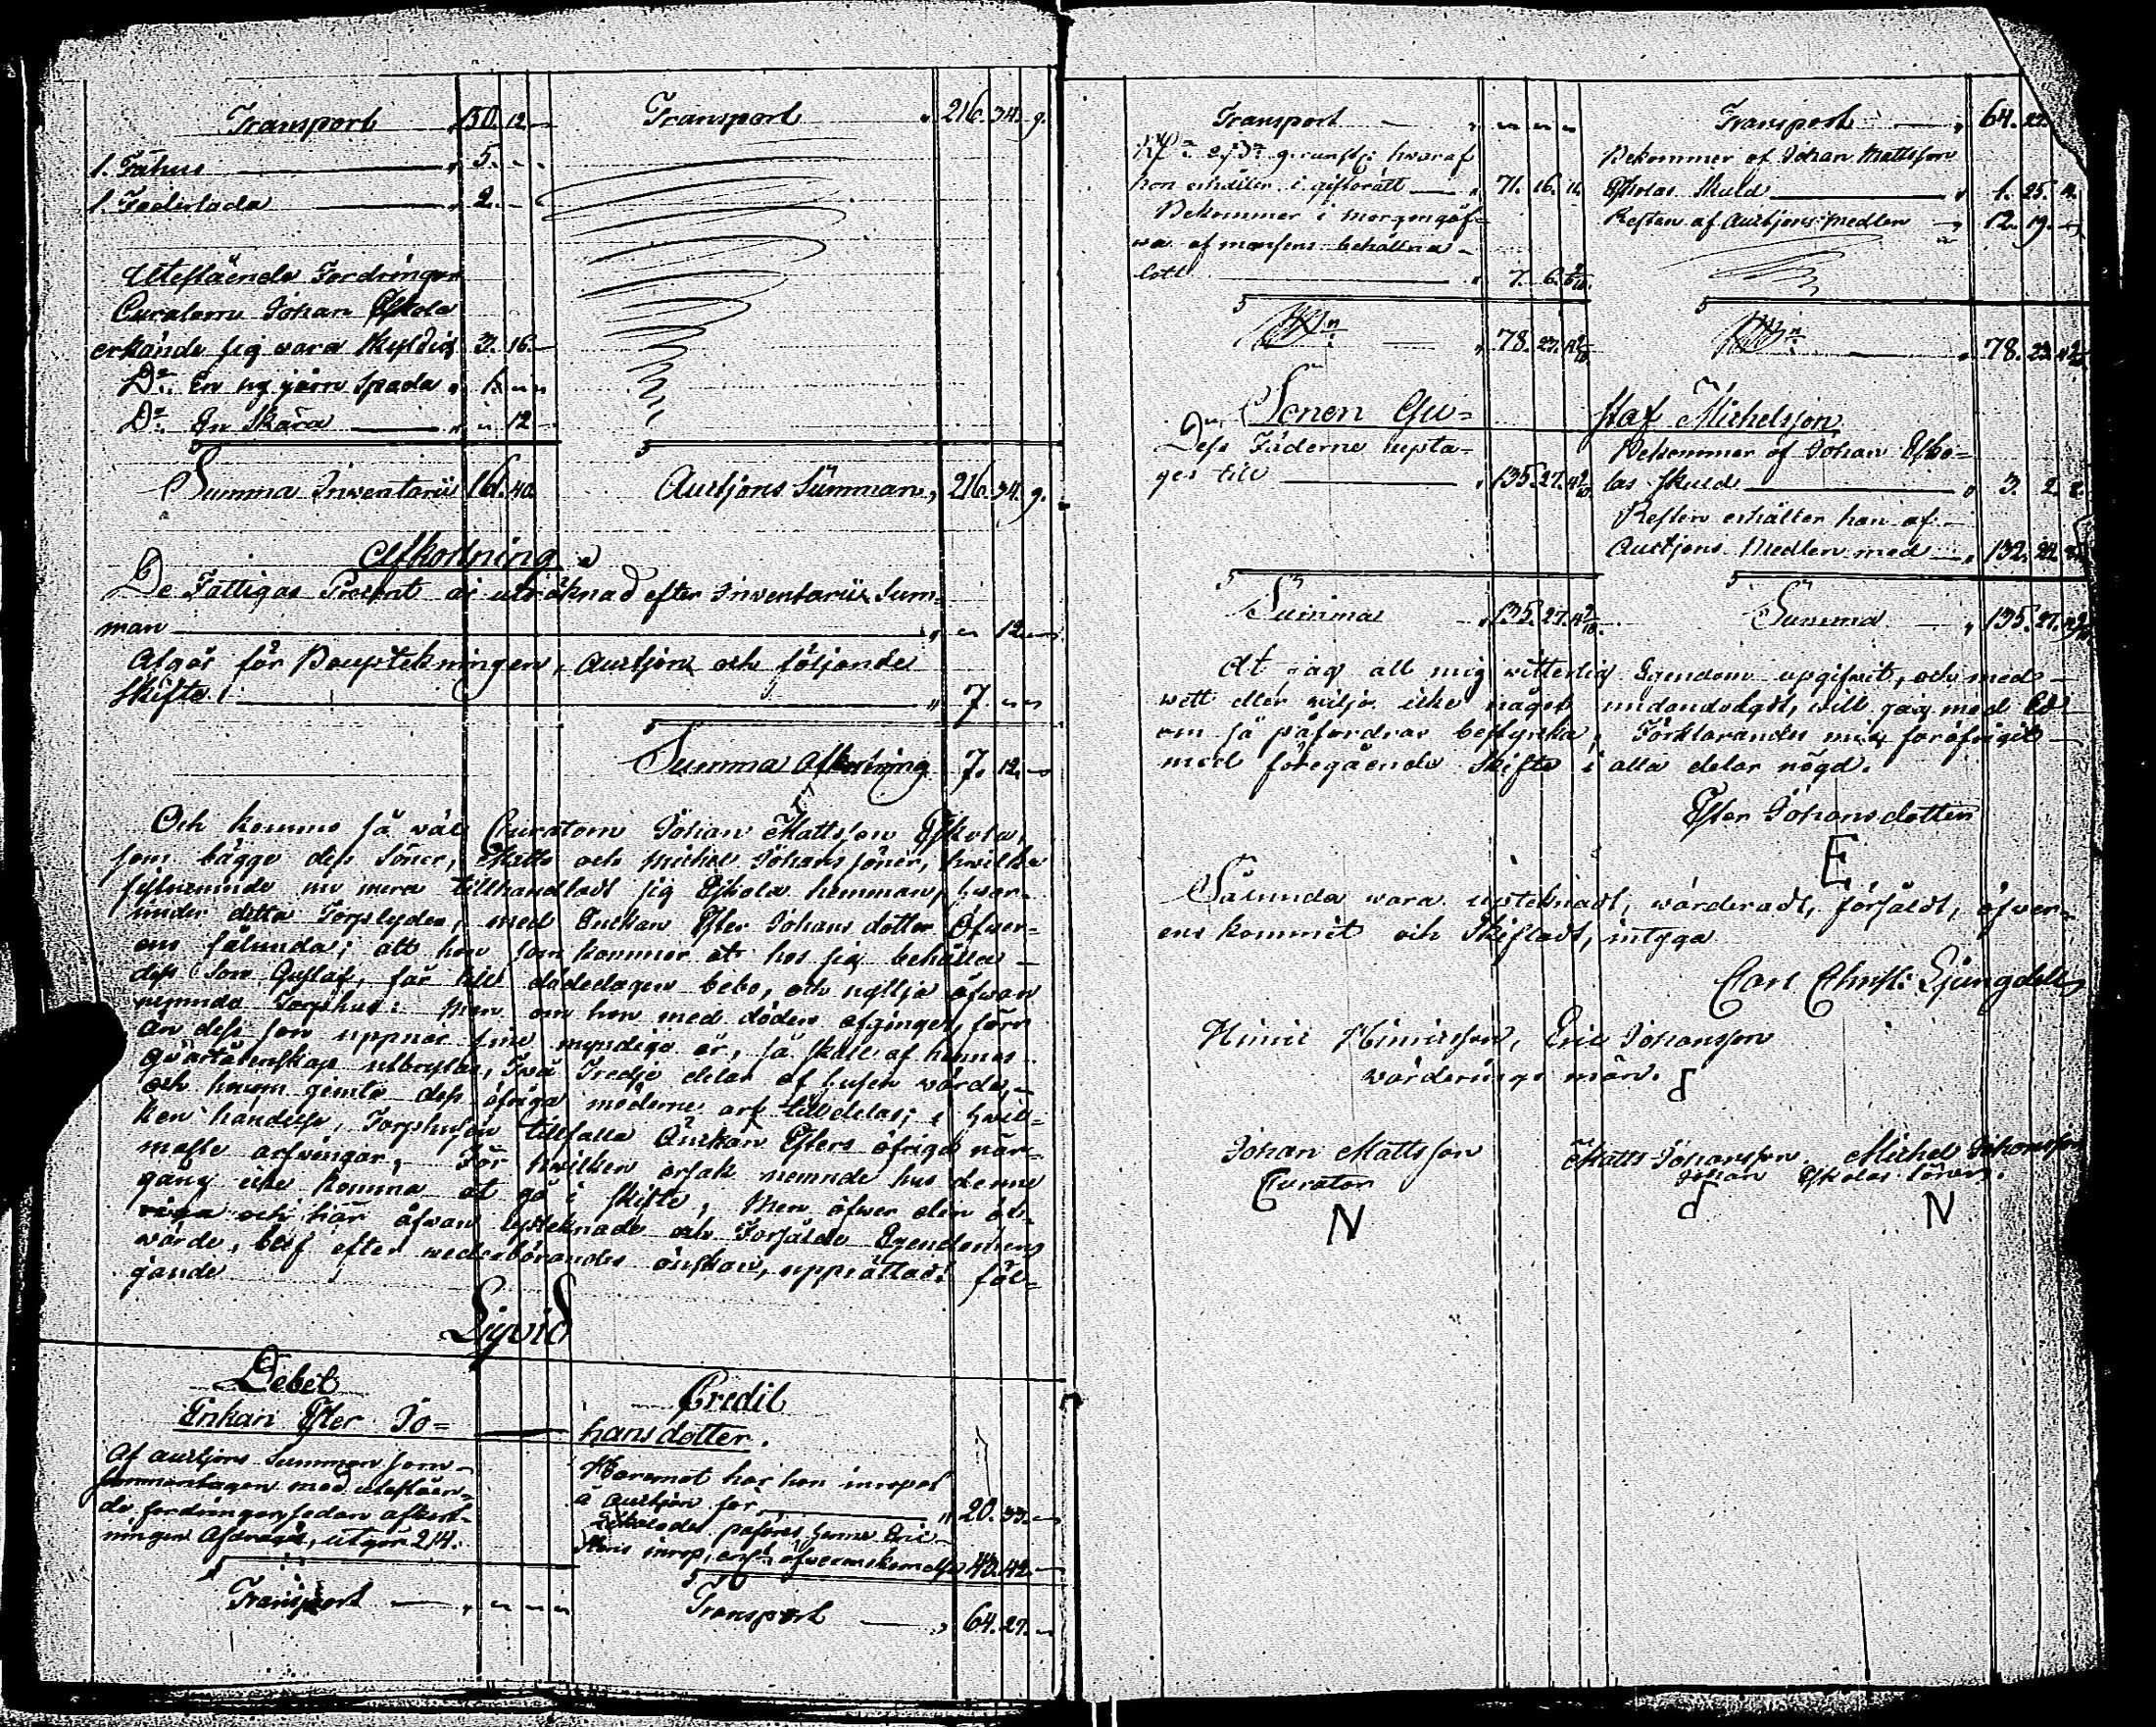 Transport " 150. 12. —
1. Fähus — " 5. " "
1. Foderlada — " 2. " —
Utestående Fordringar
Curatorn Johan Eskola
erkände sig vara skyldig 3. 16. —
Do. En ny järn Spada " 1. " "
Do. En Skära — " " 12 —
Summa Inventarii 161. 40.
Transport " 216. 34. 9.
Auctions Summan, 216. 34. 9.
Afkortning
De Fattigas Procent är uträknad efter Inventarii Sum-
man — " " 12. —
Afgår för Boupteckningen, Auction och följande
Skifte — " 7. " "
Summa Afkortning 7. 12. —
Och komme så väl Curatorn Johan Mattsson Eskola,
som bägge dess Söner, Matts och Michel Johans söner, hvilka
nu mera tillhandladt sig Eskola hemman, hvar-
under detta Torp lyder, med Enckan Ester Johans dotter öfver-
ens sålunda; att hon som kommer at hos sig behålla
dess Son Gustaf, får till dödedagen bebo, och nyttja ofvan
nemnde Torphus: Men om hon med döden afginge, förr
än dess son uppnår sine myndige år, så skall af hennes
qvarlåtenskap utbrytas, Två Tredje delar af husen värde,
och honom jemte dess öfriga möderne arf tilldelas; i hvil-
ken händelse, Torphusen tillfalla Enckan Esters öfriga när-
maste arfvingar; För hvilken orsak nemnde hus denne
gång icke komma at gå i skifte; Men öfver den öf-
riga och här ofvan upteknade och Försålde Egendomens
värde, blef efter vederbörandes önskan, upprättadt föl-
jande
Liqvid
Debet
Enkan Ester Jo-
Af auctions Summan som
sammantagen med uteståen-
de fordringar, sedan afkort-
ningen Afdragits, utgör 214.
Transport — " " " "
Credit
hansdotter.
Häremot har hon inropat
å Auction för — " 20. 33. —
påföres henne Eric
inrop, enl. öfverenskommelse 43. 42. —
Transport — " 64. 27. "
Transport — " " " "
hvaraf
hon erhåller i giftorätt — " 71. 16. 11.
Bekommer i morgongåf-
va af mansens behållna
lott — " 7. 6. 6 2/10.
78. 23. 4 2/10.
Transport — " 64. 27.
Bekommer af Johan Mattsson
Eskolas skuld — " 1. 25. 4.
Resten af Auctions Medlen " 12. 19. "
78. 23. 4 2/10.
Sonen Gu- staf Michelsson
Dess Fäderne upta-
ges till — " 135. 27. 4 2/10.
Summa " 135. 27. 4 2/10.
Bekommer af Johan Esko-
las skuld — " 3. 2. 8.
Resten erhåller han af
Auctions Medlen med — " 132. 24.
Summa — " 135. 27. 4 2/10.
At jag all mig vitterlig Egendom upgifvit, och med
vett eller vilja icke något undandolgdt, vill jag med Ed
om så påfordras bestyrka; Förklarandes mig föröfrigit
med föregående Skifte i alla delar nögd.
Ester Johansdotter
E
Sålunda vara upteknadt, värderadt, försåldt, öfver-
ens kommit och Skiftadt, intyga
Carl Christ: Ljungdell
Hinric Hinricsson, Eric Johansson
värderings män.
Johan Mattsson
Curator
N
Matts Johansson, Michel Johansson
Johan Eskolas Söner.
N